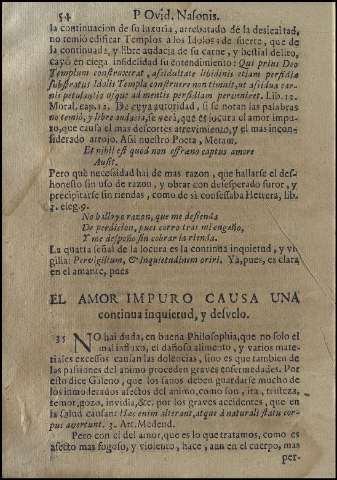 54 P Ovid. Nasonis.
la continuacion de su luxuria, arrebatado de la deslealtad,
no temió edificar Templos a los Idolos: de suerte, que de
la continuada, y libre audacia de su carne, y bestial delito,
cayò en ciega infidelidad su entendimiento: Qui prius Deo
Templum construxerat, assiduitate libidinis etiam perfidiæ
substratus Idolis Templa construere non timuit, ut assidua car-
nis petulantia usque ad mentis perfidiam perveniret. Lib. 12.
Moral. cap. 12. De cuya autoridad, si se notan las palabras
no temiò, y libre audacia, se verà, que es locura el amor impu-
ro, que causa el mas descortes atrevimiento, y el mas incon-
siderado arrojo. Assi nuestro Poeta, Metam.
Et nihil est quod non effræno captus amore
Ausit.
Pero què necessidad hai de mas razon, que hallarse el des-
honesto sin uso de razon, y obrar con desesperado furor, y
precipitarse sin riendas, como de si confessaba Herrera, lib.
2. eleg. 9.
No hallo yo razon, que me defienda
De perdicion, pues corro tras mi engaño,
Y me despeño sin cobrar la rienda.
La quarta señal de la locura es la continua inquietud, y vi-
gilia: Pervigilium, & inquietudinem oriri. Ya, pues, es clara
en el amante, pues
EL AMOR IMPURO CAUSA UNA
continua inquietud, y desvelo.
35 NO hai duda, en buena Philosophia, que no solo el
mal influxo, el dañoso alimento, y varios mate-
riales excessos causan las dolencias, sino es que tambien de
las passiones del animo proceden graves enfermedades. Por
esto dice Galeno, que los sanos deben guardarse mucho de
los inmoderados afectos del animo, como son, ira, tristeza,
temor, gozo, invidia, &c. por los graves accidentes, que en
la salud causan: Hæc enim alterant, atque à naturali statu cor-
pus avertunt. 3. Art. Medend.
Pero con el del amor, que es lo que tratamos, como es
afecto mas fogoso, y violento, hace, aun en el cuerpo, mas
per-